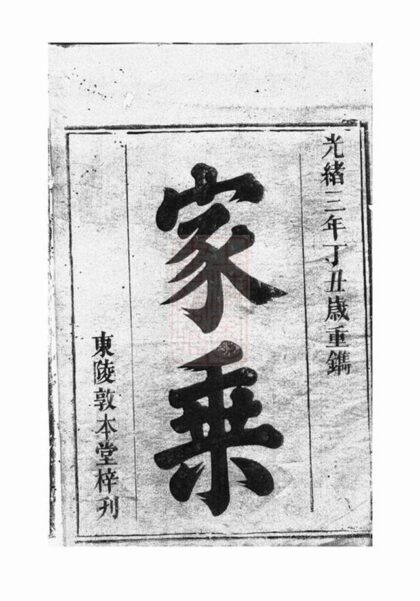 光緒三年丁丑歲重鐫
家乘
東陵敦本堂梓刋